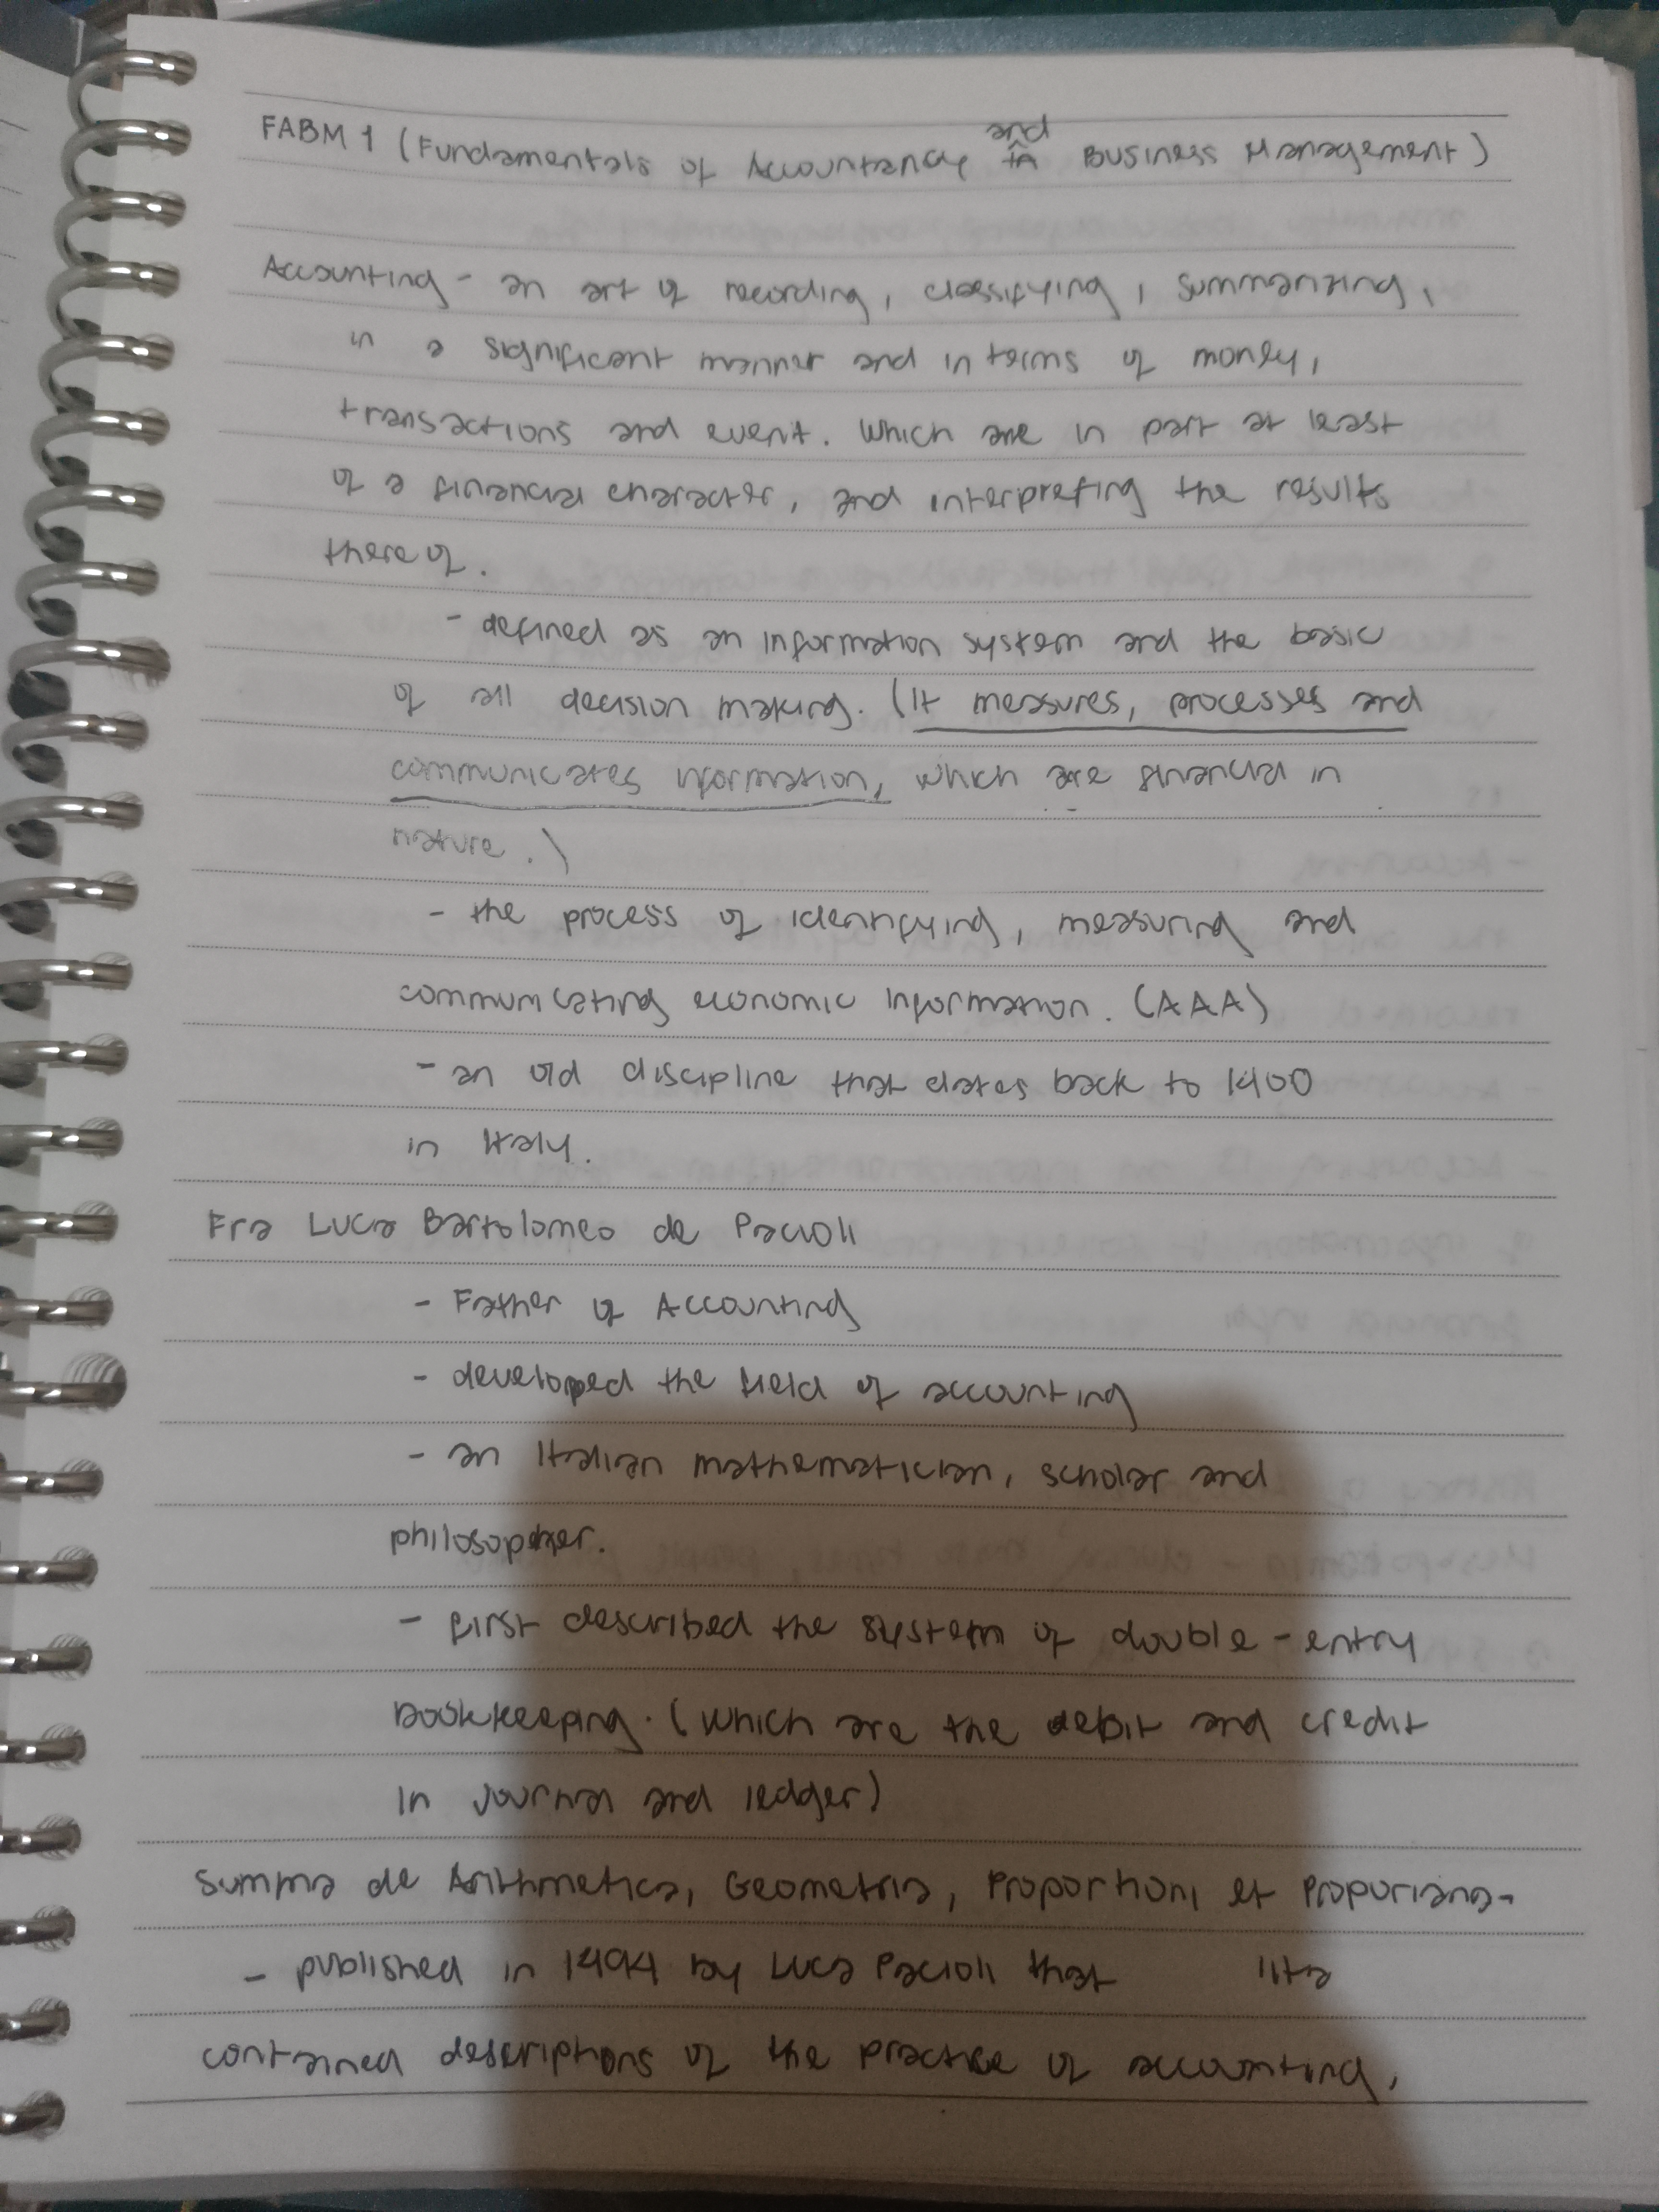 FABM 1 (Fundamentals of Accountancy and Business Management)
Accounting - an art of recording, classifying, summarizing,
in a significant manner and in terms of money,
transactions and event. Which are in part at least
of a financial character, and interpreting the results
there of.
- defined as an information system and the basic
of all decision making. (It measures, processes and
communicates information, which are financial in
nature.)
- the process of identifying, measuring and
communicating economic information. (AAA)
- an old discipline that dates back to 1400
in Italy.
Fra Luca Bartolomeo de Pacioli
- Father of Accounting
- developed the field of accounting
- an Italian mathematician, scholar and
philosopher.
- first described the system of double-entry
bookkeeping. (which are the debit and credit
in journal and ledger)
Summa de Arithmetica, Geometria, Proportioni et Proporiana-
- published in 1494 by Luca Pacioli that lita
contained descriptions of the practice of accounting,